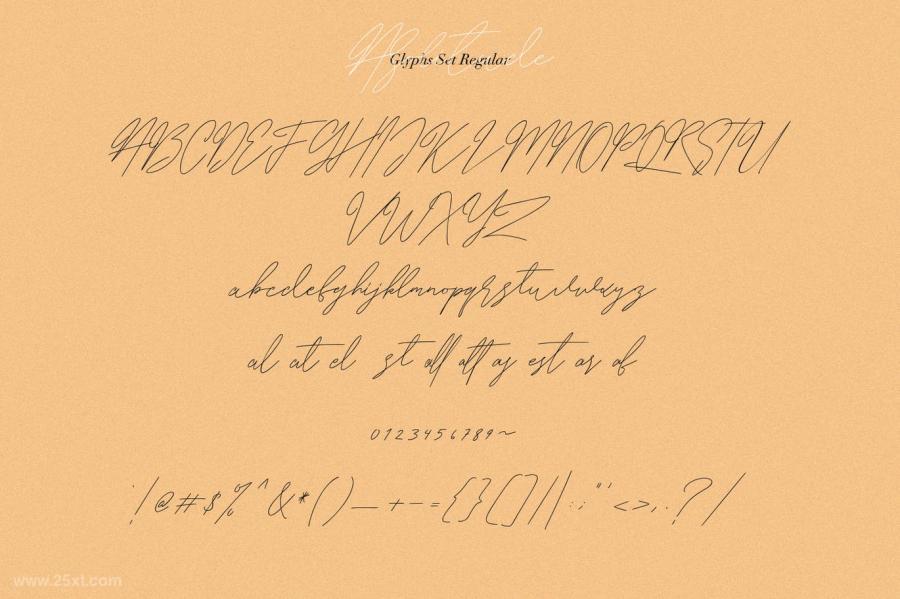 Glyphs Set Regular
ABCDEFGHIJKLMNOPQRSTU
VWXYZ
abcdefghijklmnopqrstuvwxyz
al at el st all att as est or of
0123456789~
`!@#$%^&*()_+-={}[]|\:;"'<>,.?/
www.25xt.com